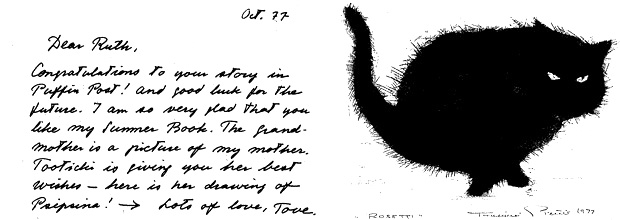 Oct. 77
Dear Ruth,
Congratulations to your story in
Puffin Post! and good luck for the
future. I am so very glad that you
like my Summer Book. The grand-
mother is a picture of my mother.
Tooticki is giving you her best
wishes – here is her drawing of
Psipsina! → Lots of love, Tove.
"ROSETTI" 1977